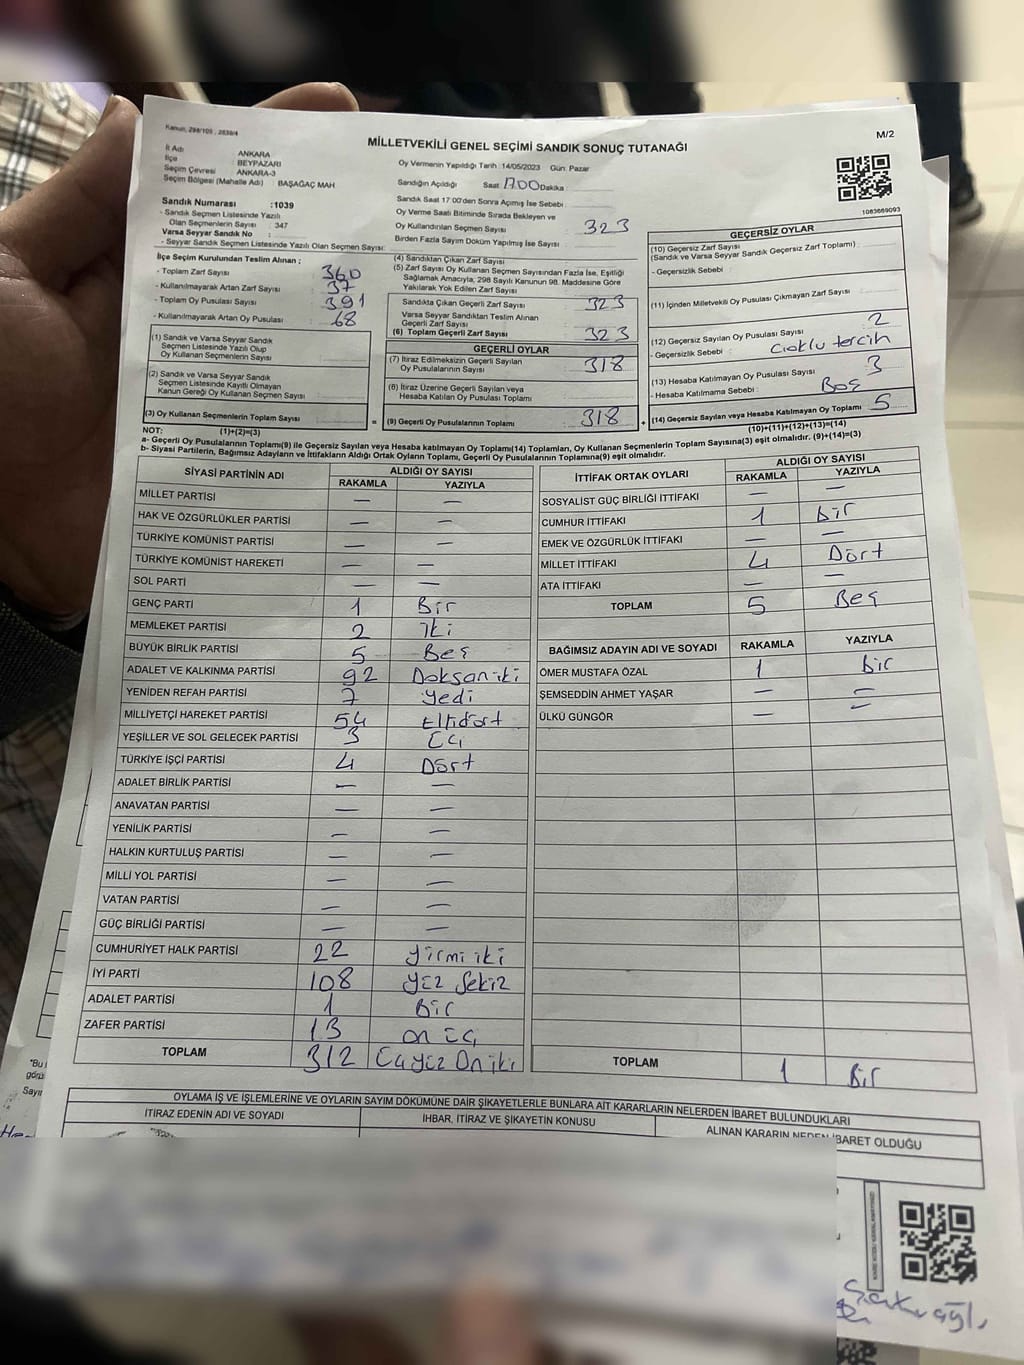 Kanun, 298/105 , 2839/4
M/2
MİLLETVEKİLİ GENEL SEÇİMİ SANDIK SONUÇ TUTANAĞI
1083669093
İl Adı : ANKARA
İlçe : BEYPAZARI
Seçim Çevresi : ANKARA-3
Seçim Bölgesi (Mahalle Adı) : BAŞAĞAÇ MAH
Sandık Numarası : 1039
- Sandık Seçmen Listesinde Yazılı
Olan Seçmenlerin Sayısı : 347
Varsa Seyyar Sandık No :
- Seyyar Sandık Seçmen Listesinde Yazılı Olan Seçmen Sayısı:
Oy Vermenin Yapıldığı Tarih :14/05/2023 Gün: Pazar
Sandığın Açıldığı Saat 17.00 Dakika :
Sandık Saat 17:00'den Sonra Açılmış İse Sebebi :
Oy Verme Saati Bitiminde Sırada Bekleyen ve
Oy Kullandırılan Seçmen Sayısı : 323
Birden Fazla Sayım Doküm Yapılmış İse Sayısı :
İlçe Seçim Kurulundan Teslim Alınan ;
- Toplam Zarf Sayısı : 360
- Kullanılmayarak Artan Zarf Sayısı : 37
- Toplam Oy Pusulası Sayısı : 391
- Kullanılmayarak Artan Oy Pusulası : 68
(1) Sandık ve Varsa Seyyar Sandık
Seçmen Listesinde Yazılı Olup
Oy Kullanan Seçmenlerin Sayısı :
(2) Sandık ve Varsa Seyyar Sandık
Seçmen Listesinde Kayıtlı Olmayan
Kanun Gereği Oy Kullanan Seçmenlerin Sayısı :
(3) Oy Kullanan Seçmenlerin Toplam Sayısı =
(4) Sandıktan Çıkan Zarf Sayısı :
(5) Zarf Sayısı Oy Kullanan Seçmen Sayısından Fazla İse, Eşitliği
Sağlamak Amacıyla, 298 Sayılı Kanunun 98. Maddesine Göre
Yakılarak Yok Edilen Zarf Sayısı :
Sandıkta Çıkan Geçerli Zarf Sayısı : 323
Varsa Seyyar Sandıktan Teslim Alınan
Geçerli Zarf Sayısı :
(6) Toplam Geçerli Zarf Sayısı : 323
GEÇERLİ OYLAR
(7) İtiraz Edilmeksizin Geçerli Sayılan
Oy Pusulalarının Sayısı : 318
(8) İtiraz Üzerine Geçerli Sayılan veya
Hesaba Katılan Oy Pusulası Toplamı :
(9) Geçerli Oy Pusulalarının Toplamı : 318 +
GEÇERSİZ OYLAR
(10) Geçersiz Zarf Sayısı
(Sandık ve Varsa Seyyar Sandık Geçersiz Zarf Toplamı) :
- Geçersizlik Sebebi :
(11) İçinden Milletvekili Oy Pusulası Çıkmayan Zarf Sayısı :
(12) Geçersiz Sayılan Oy Pusulası Sayısı : 2
- Geçersizlik Sebebi : Çoklu tercih
(13) Hesaba Katılmayan Oy Pusulası Sayısı : 3
- Hesaba Katılmama Sebebi : Boş
(14) Geçersiz Sayılan veya Hesaba Katılmayan Oy Toplamı : 5
NOT: (1)+(2)=(3)
(10)+(11)+(12)+(13)=(14)
a- Geçerli Oy Pusulalarının Toplamı(9) ile Geçersiz Sayılan veya Hesaba katılmayan Oy Toplamı(14) Toplamları, Oy Kullanan Seçmenlerin Toplam Sayısına(3) eşit olmalıdır. (9)+(14)=(3)
b- Siyasi Partilerin, Bağımsız Adayların ve İttifakların Aldığı Ortak Oyların Toplamı, Geçerli Oy Pusulalarının Toplamına(9) eşit olmalıdır.
SİYASİ PARTİNİN ADI ALDIĞI OY SAYISI
RAKAMLA YAZIYLA
MİLLET PARTİSİ — —
HAK VE ÖZGÜRLÜKLER PARTİSİ — —
TÜRKİYE KOMÜNİST PARTİSİ — —
TÜRKİYE KOMÜNİST HAREKETİ — —
SOL PARTİ — —
GENÇ PARTİ 1 Bir
MEMLEKET PARTİSİ 2 İki
BÜYÜK BİRLİK PARTİSİ 5 Beş
ADALET VE KALKINMA PARTİSİ 92 Doksaniki
YENİDEN REFAH PARTİSİ 7 Yedi
MİLLİYETÇİ HAREKET PARTİSİ 54 Ellidört
YEŞİLLER VE SOL GELECEK PARTİSİ 3 Üç
TÜRKİYE İŞÇİ PARTİSİ 4 Dört
ADALET BİRLİK PARTİSİ — —
ANAVATAN PARTİSİ — —
YENİLİK PARTİSİ — —
HALKIN KURTULUŞ PARTİSİ — —
MİLLİ YOL PARTİSİ — —
VATAN PARTİSİ — —
GÜÇ BİRLİĞİ PARTİSİ — —
CUMHURİYET HALK PARTİSİ 22 Yirmi iki
İYİ PARTİ 108 Yüz Sekiz
ADALET PARTİSİ 1 Bir
ZAFER PARTİSİ 13 on üç
TOPLAM 312 Üçyüz Oniki
İTTİFAK ORTAK OYLARI ALDIĞI OY SAYISI
RAKAMLA YAZIYLA
SOSYALİST GÜÇ BİRLİĞİ İTTİFAKI — —
CUMHUR İTTİFAKI 1 Bir
EMEK VE ÖZGÜRLÜK İTTİFAKI — —
MİLLET İTTİFAKI 4 Dört
ATA İTTİFAKI — —
TOPLAM 5 Beş
BAĞIMSIZ ADAYIN ADI VE SOYADI RAKAMLA YAZIYLA
ÖMER MUSTAFA ÖZAL 1 Bir
ŞEMSEDDİN AHMET YAŞAR — —
ÜLKÜ GÜNGÖR — —
TOPLAM 1 Bir
OYLAMA İŞ VE İŞLEMLERİNE VE OYLARIN SAYIM DÖKÜMÜNE DAİR ŞİKAYETLERLE BUNLARA AİT KARARLARIN NELERDEN İBARET BULUNDUKLARI
İTİRAZ EDENİN ADI VE SOYADI İHBAR, İTİRAZ VE ŞİKAYETİN KONUSU ALINAN KARARIN NEDEN İBARET OLDUĞU